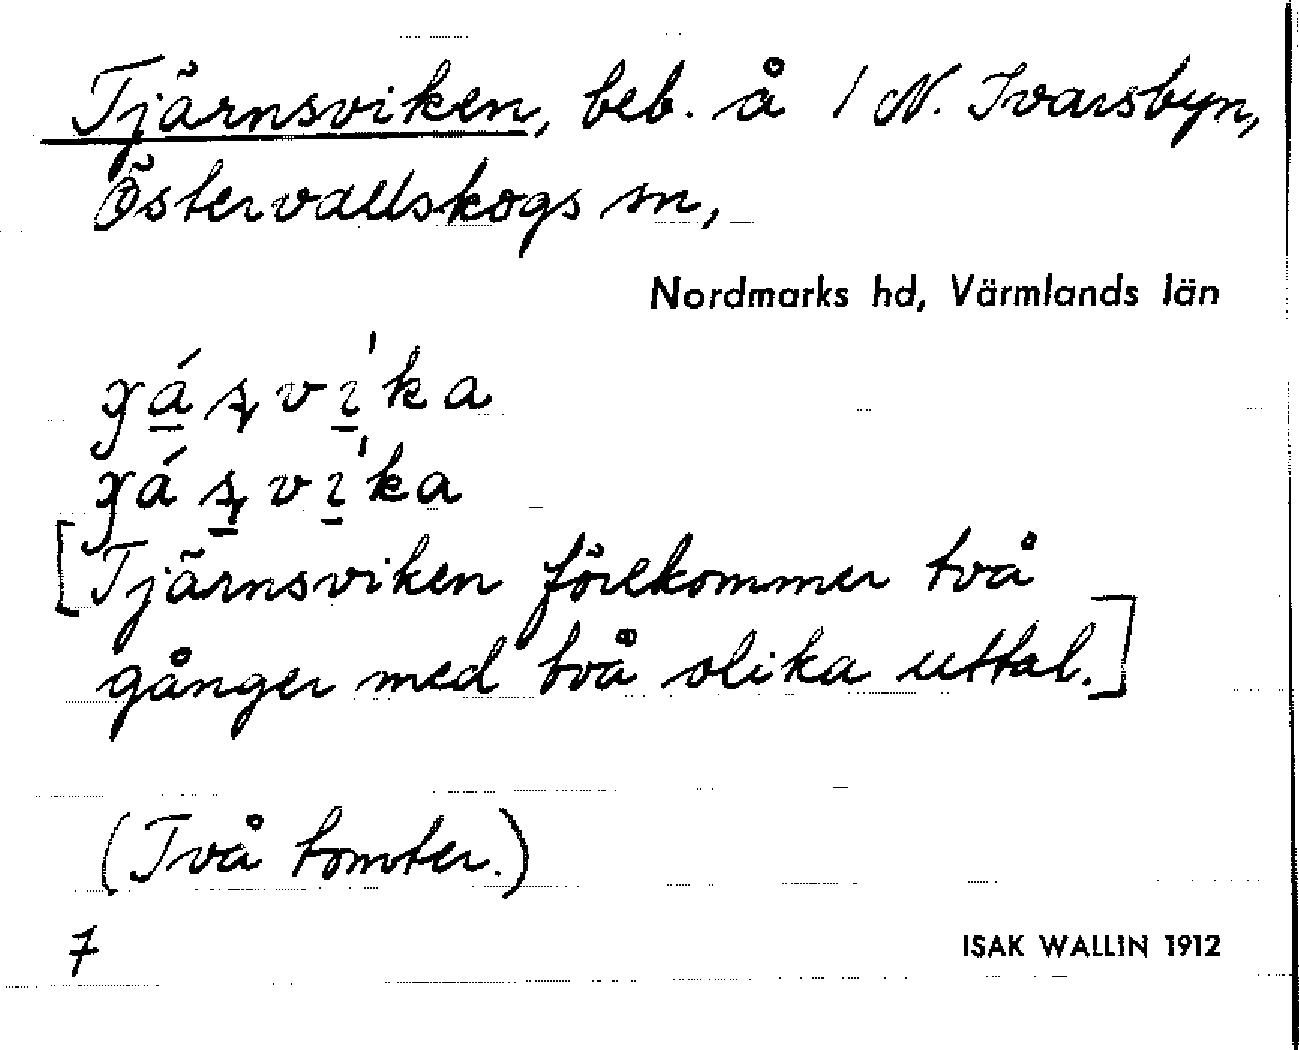 Tjärnsviken, beb. å 1 N. Ivarsbyn,
Östervallskogs sn,
Nordmarks hd, Värmlands län
[Tjärnsviken förekommer två
gånger med två olika uttal.]
(Två tomter.)
7
ISAK WALLIN 1912